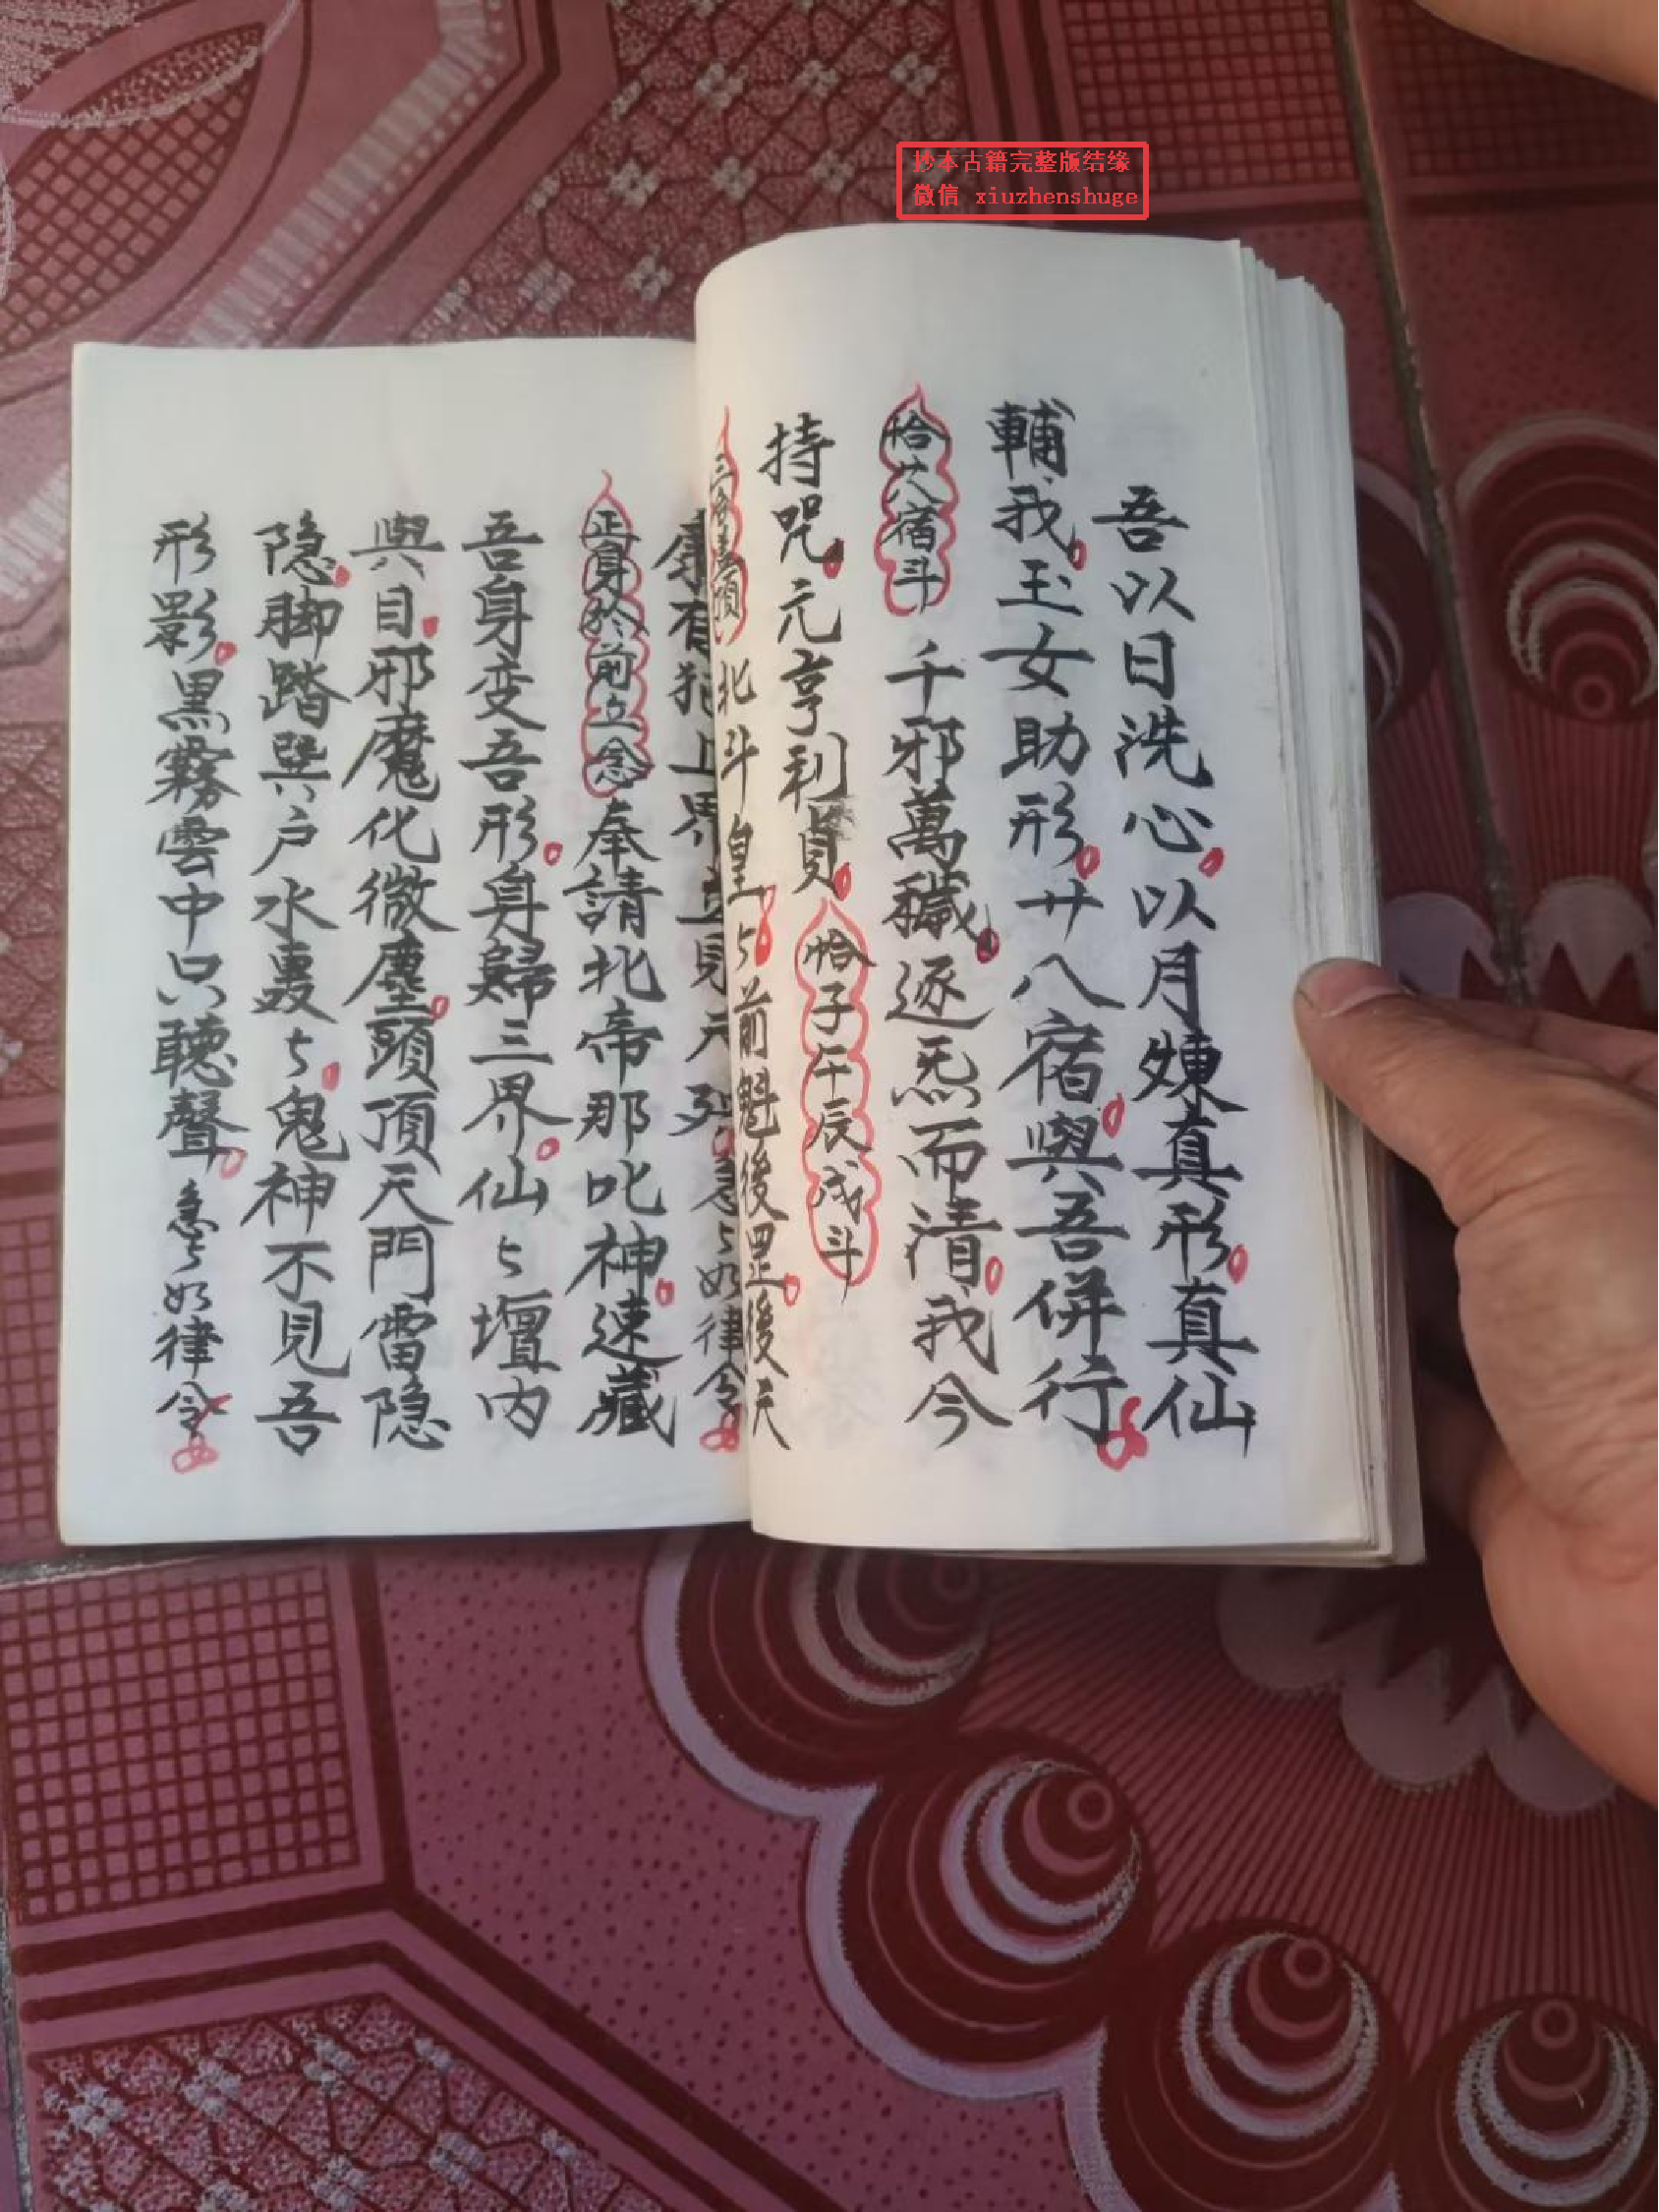 抄本古籍完整版结缘
微信 xiuzhenshuge
吾以日洗心以月煉真形真仙
輔我玉女助形廿八宿與吾併行
恰廿八宿斗 千邪萬穢逐炁而清我今
持咒元亨利貞 恰子午辰戌斗
北斗皇 前魁後罡後天
急ㄣ如律令
正身於前立念 奉請北帝那叱神速藏
吾身变吾形身歸三界仙ㄣ壇内
與目邪魔化微塵頭頂天門雷隐
隐脚踏巽户水轰ㄣ鬼神不見吾
形影黑霧雲中只聽聲急ㄣ如律令